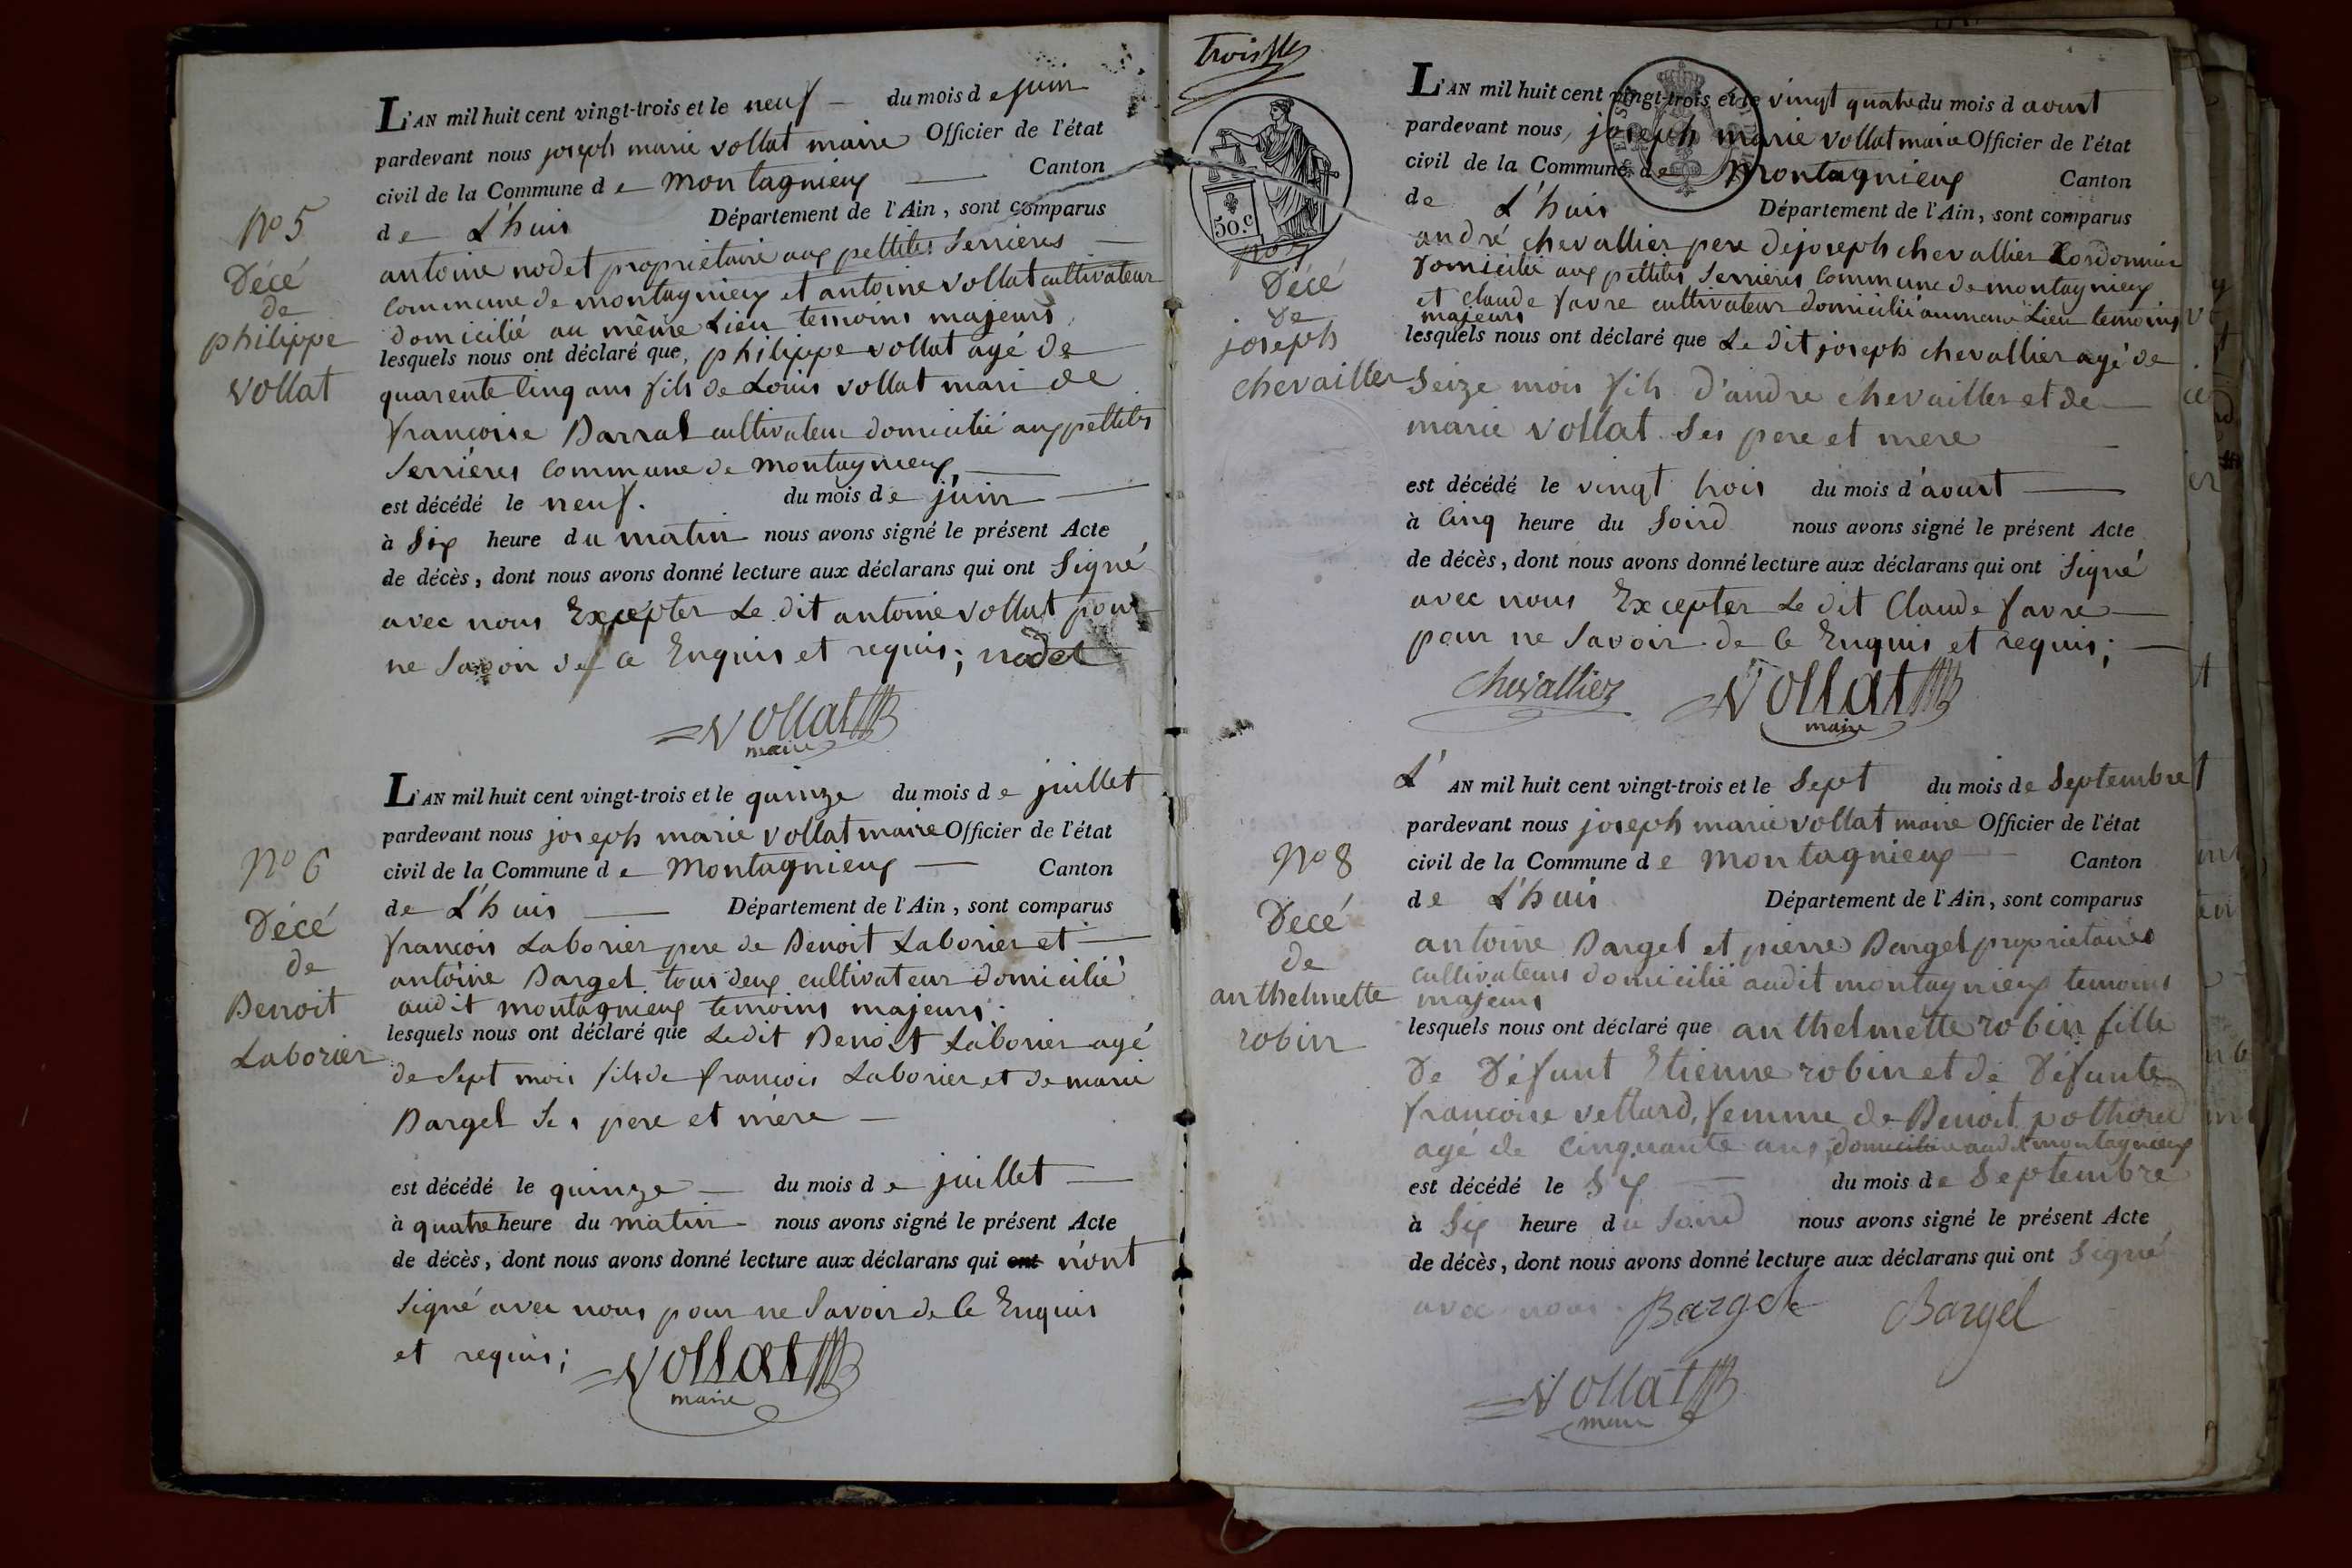 L'AN mil huit cent vingt-trois et le neuf du mois de juin
pardevant nous joseph marie vollat maire Officier de l'état
civil de la Commune de montagnieux Canton
de L'huis Département de l'Ain, sont comparus
antoine nodet proprietaire aux pettites Serrieres
Commune de montagnieux et antoine vollat cultivateur
domicilié au même Lieu temoins majeurs
lesquels nous ont déclaré que, philippe vollat agé de
quarente Cinq ans fils de Louis vollat mari de
francoise Barral cultivateur domicilié aux pettites
Serrieres Commune de montagnieux
est décédé le neuf. du mois de juin
à Six heure du matin nous avons signé le présent Acte
de décès, dont nous avons donné lecture aux déclarans qui ont Signé
avec nous Excepter Le dit antoine vollat pour
ne Savoir de Ce Enquis et requis; nodet
vollat
maire
No 5
Décé
de
philippe
vollat
L'AN mil huit cent vingt-trois et le quinze du mois de juillet
pardevant nous joseph marie vollat maire Officier de l'état
civil de la Commune de Montagnieux Canton
de L'huis Département de l'Ain, sont comparus
francois Laborier pere de Benoit Laborier et
antoine Bargel tous deux cultivateur domicilié
audit montagnieux temoins majeurs.
lesquels nous ont déclaré que Ledit Benoit Laborier agé
de Sept mois fils de francois Laborier et de marie
Bargel Ses pere et mere
est décédé le quinze du mois de juillet
à quatre heure du matin nous avons signé le présent Acte
de décès, dont nous avons donné lecture aux déclarans qui ont n'ont
Signé avec nous pour ne Savoir de Ce Enquis
et requis; vollat
maire
No 6
Décé
de
Benoit
Laborier
trois
50.c
L'AN mil huit cent vingt-trois et le vingt quatre du mois d'aoust
pardevant nous, joseph marie vollat maire Officier de l'état
civil de la Commune de Montagnieux Canton
de L'huis Département de l'Ain, sont comparus
andré chevallier pere de joseph chevallier Cordonnier
domicilié aux pettites Serrieres Commune de montagnieux
et claude favre cultivateur domicilié au meme Lieu temoins
majeurs
lesquels nous ont déclaré que Le dit joseph chevallier agé de
Seize mois fils d'andre chevailler et de
marie vollat Ses pere et mere
est décédé le vingt trois du mois d'aoust
à Cinq heure du Soird nous avons signé le présent Acte
de décès, dont nous avons donné lecture aux déclarans qui ont Signé
avec nous Excepter Le dit Claude favre
pour ne Savoir de Ce Enquis et requis;
chevallier vollat
maire
No 7
Décé
de
joseph
chevailler
L'AN mil huit cent vingt-trois et le Sept du mois de Septembre
pardevant nous joseph marie vollat maire Officier de l'état
civil de la Commune de montagnieux Canton
de L'huis Département de l'Ain, sont comparus
antoine Bargel et pierre Bargel proprietaires
cultivateurs domicilié audit montagnieux temoins
majeurs
lesquels nous ont déclaré que anthelmette robin fille
De Défunt Etienne robin et de Défunte
francoise vettard, femme de Benoit pothoud
agé de Cinquante ans, domiciliée audit montagnieux
est décédé le Six du mois de Septembre
à Six heure du Soird nous avons signé le présent Acte
de décès, dont nous avons donné lecture aux déclarans qui ont Signé
avec nous. Bargel Bargel
vollat
maire
No 8
Décé
de
anthelmette
robin